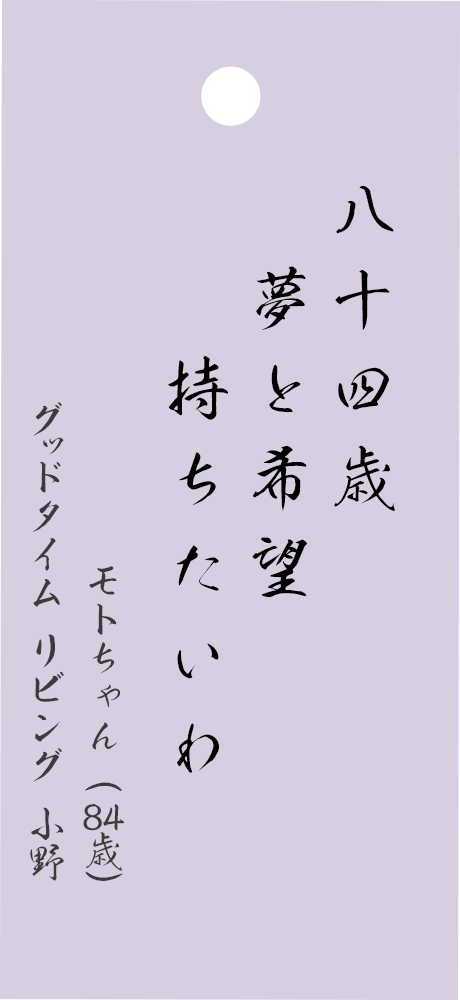 八十四歳
夢と希望
持ちたいわ
モトちゃん（84歳）
グッドタイム リビング 小野